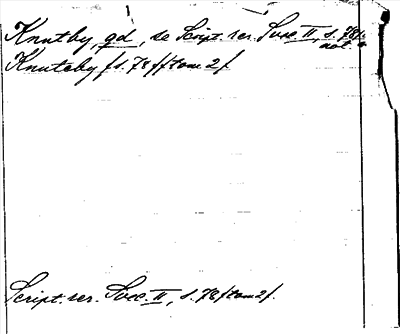 Knutby, gd, se Script. rer. Svec. II, s. 78,
not
Knuteby f s. 78 f f tom 2 f.
Script. rer. Svec. II, s. 78 f tom 2 f.